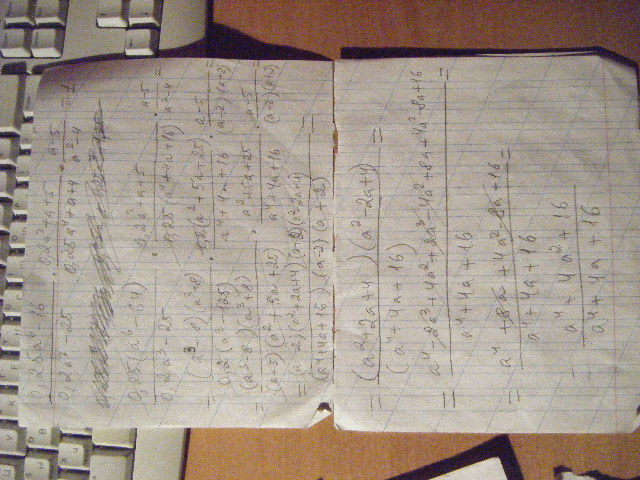 0,25a⁶ - 16 / 0,2a³ - 25 · 0,2a² + a + 5 / 0,25a⁴ + a + 4 · a - 5 / a² - 4 = 1
0,25(a⁶ - 64) / 0,2a³ - 25 · 0,2a² + a + 5 / 0,25(a⁴ + 4a + 16) · a - 5 / a² - 4 =
= (a³ - 8)(a³ + 8) / 0,2(a³ - 125) · 0,2(a² + 5a + 25) / a⁴ + 4a + 16 · a - 5 / (a - 2)(a + 2) =
= (a³ - 8)(a³ + 8) / (a - 5)(a² + 5a + 25) · a² + 5a + 25 / a⁴ + 4a + 16 · a - 5 / (a - 2)(a + 2) =
= (a - 2)(a² + 2a + 4)(a + 2)(a² - 2a + 4) / (a⁴ + 4a + 16)(a - 2)(a + 2) =
= (a² + 2a + 4)(a² - 2a + 4) / (a⁴ + 4a + 16) =
= a⁴ - 2a³ + 4a² + 2a³ - 4a² + 8a + 4a² - 8a + 16 / a⁴ + 4a + 16 =
= a⁴ + 8a + 4a² - 8a + 16 / a⁴ + 4a + 16 =
= a⁴ + 4a² + 16 / a⁴ + 4a + 16